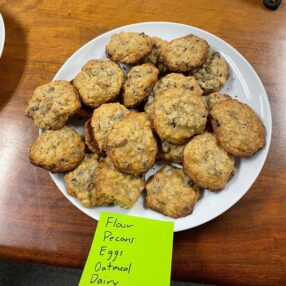 Flour
Pecans
Eggs
Oatmeal
Dairy